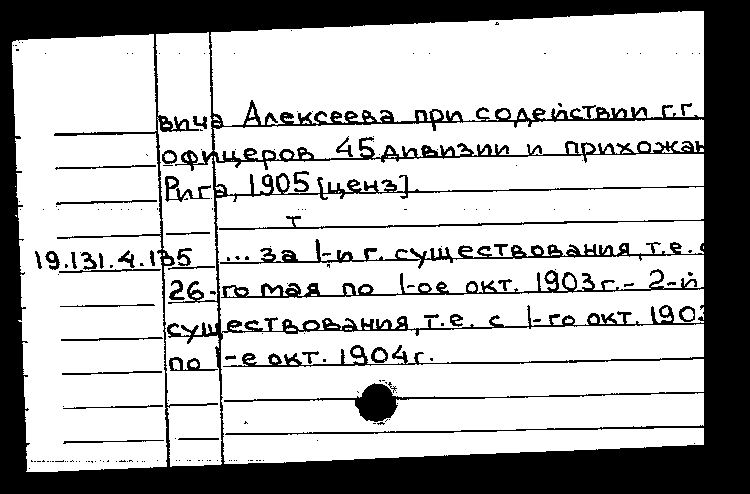 вича Алексеева при содействии г.г.
офицеров 45 дивизии и прихожан
Рига, 1905 [ценз].
т
19.131.4.135 ... за 1-й г. существования, т.е. с
26-го мая по 1-ое окт. 1903 г. - 2-й
существования, т.е. с 1-го окт. 1903
по 1-е окт. 1904 г.